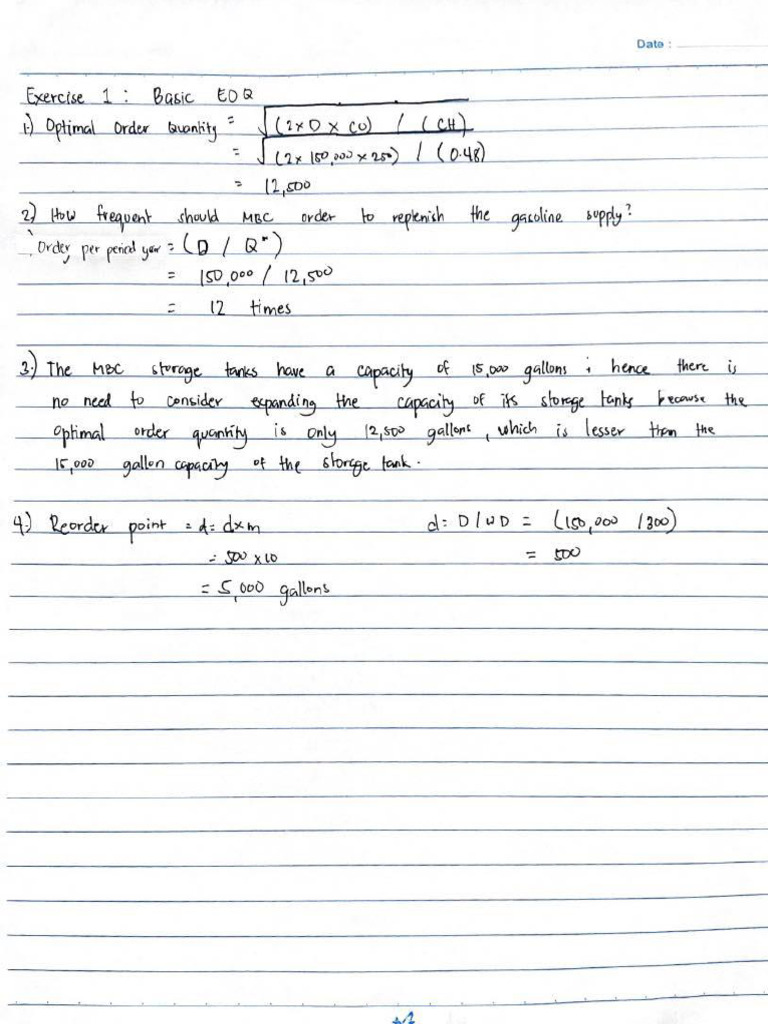 Date :
Exercise 1 : Basic EOQ
1.) Optimal Order Quantity = √(2×D×CO) / (CH)
= √(2×150,000×250) / (0.48)
= 12,500
2) How frequent should MBC order to replenish the gasoline supply?
Order per period year = (D / Q*)
= 150,000 / 12,500
= 12 times
3.) The MBC storage tanks have a capacity of 15,000 gallons ; hence there is
no need to consider expanding the capacity of its storage tanks because the
optimal order quantity is only 12,500 gallons, which is lesser than the
15,000 gallon capacity of the storage tank.
4.) Reorder point = d = d×m d: D/WD = (150,000 / 300)
= 500 × 10 = 500
= 5,000 gallons